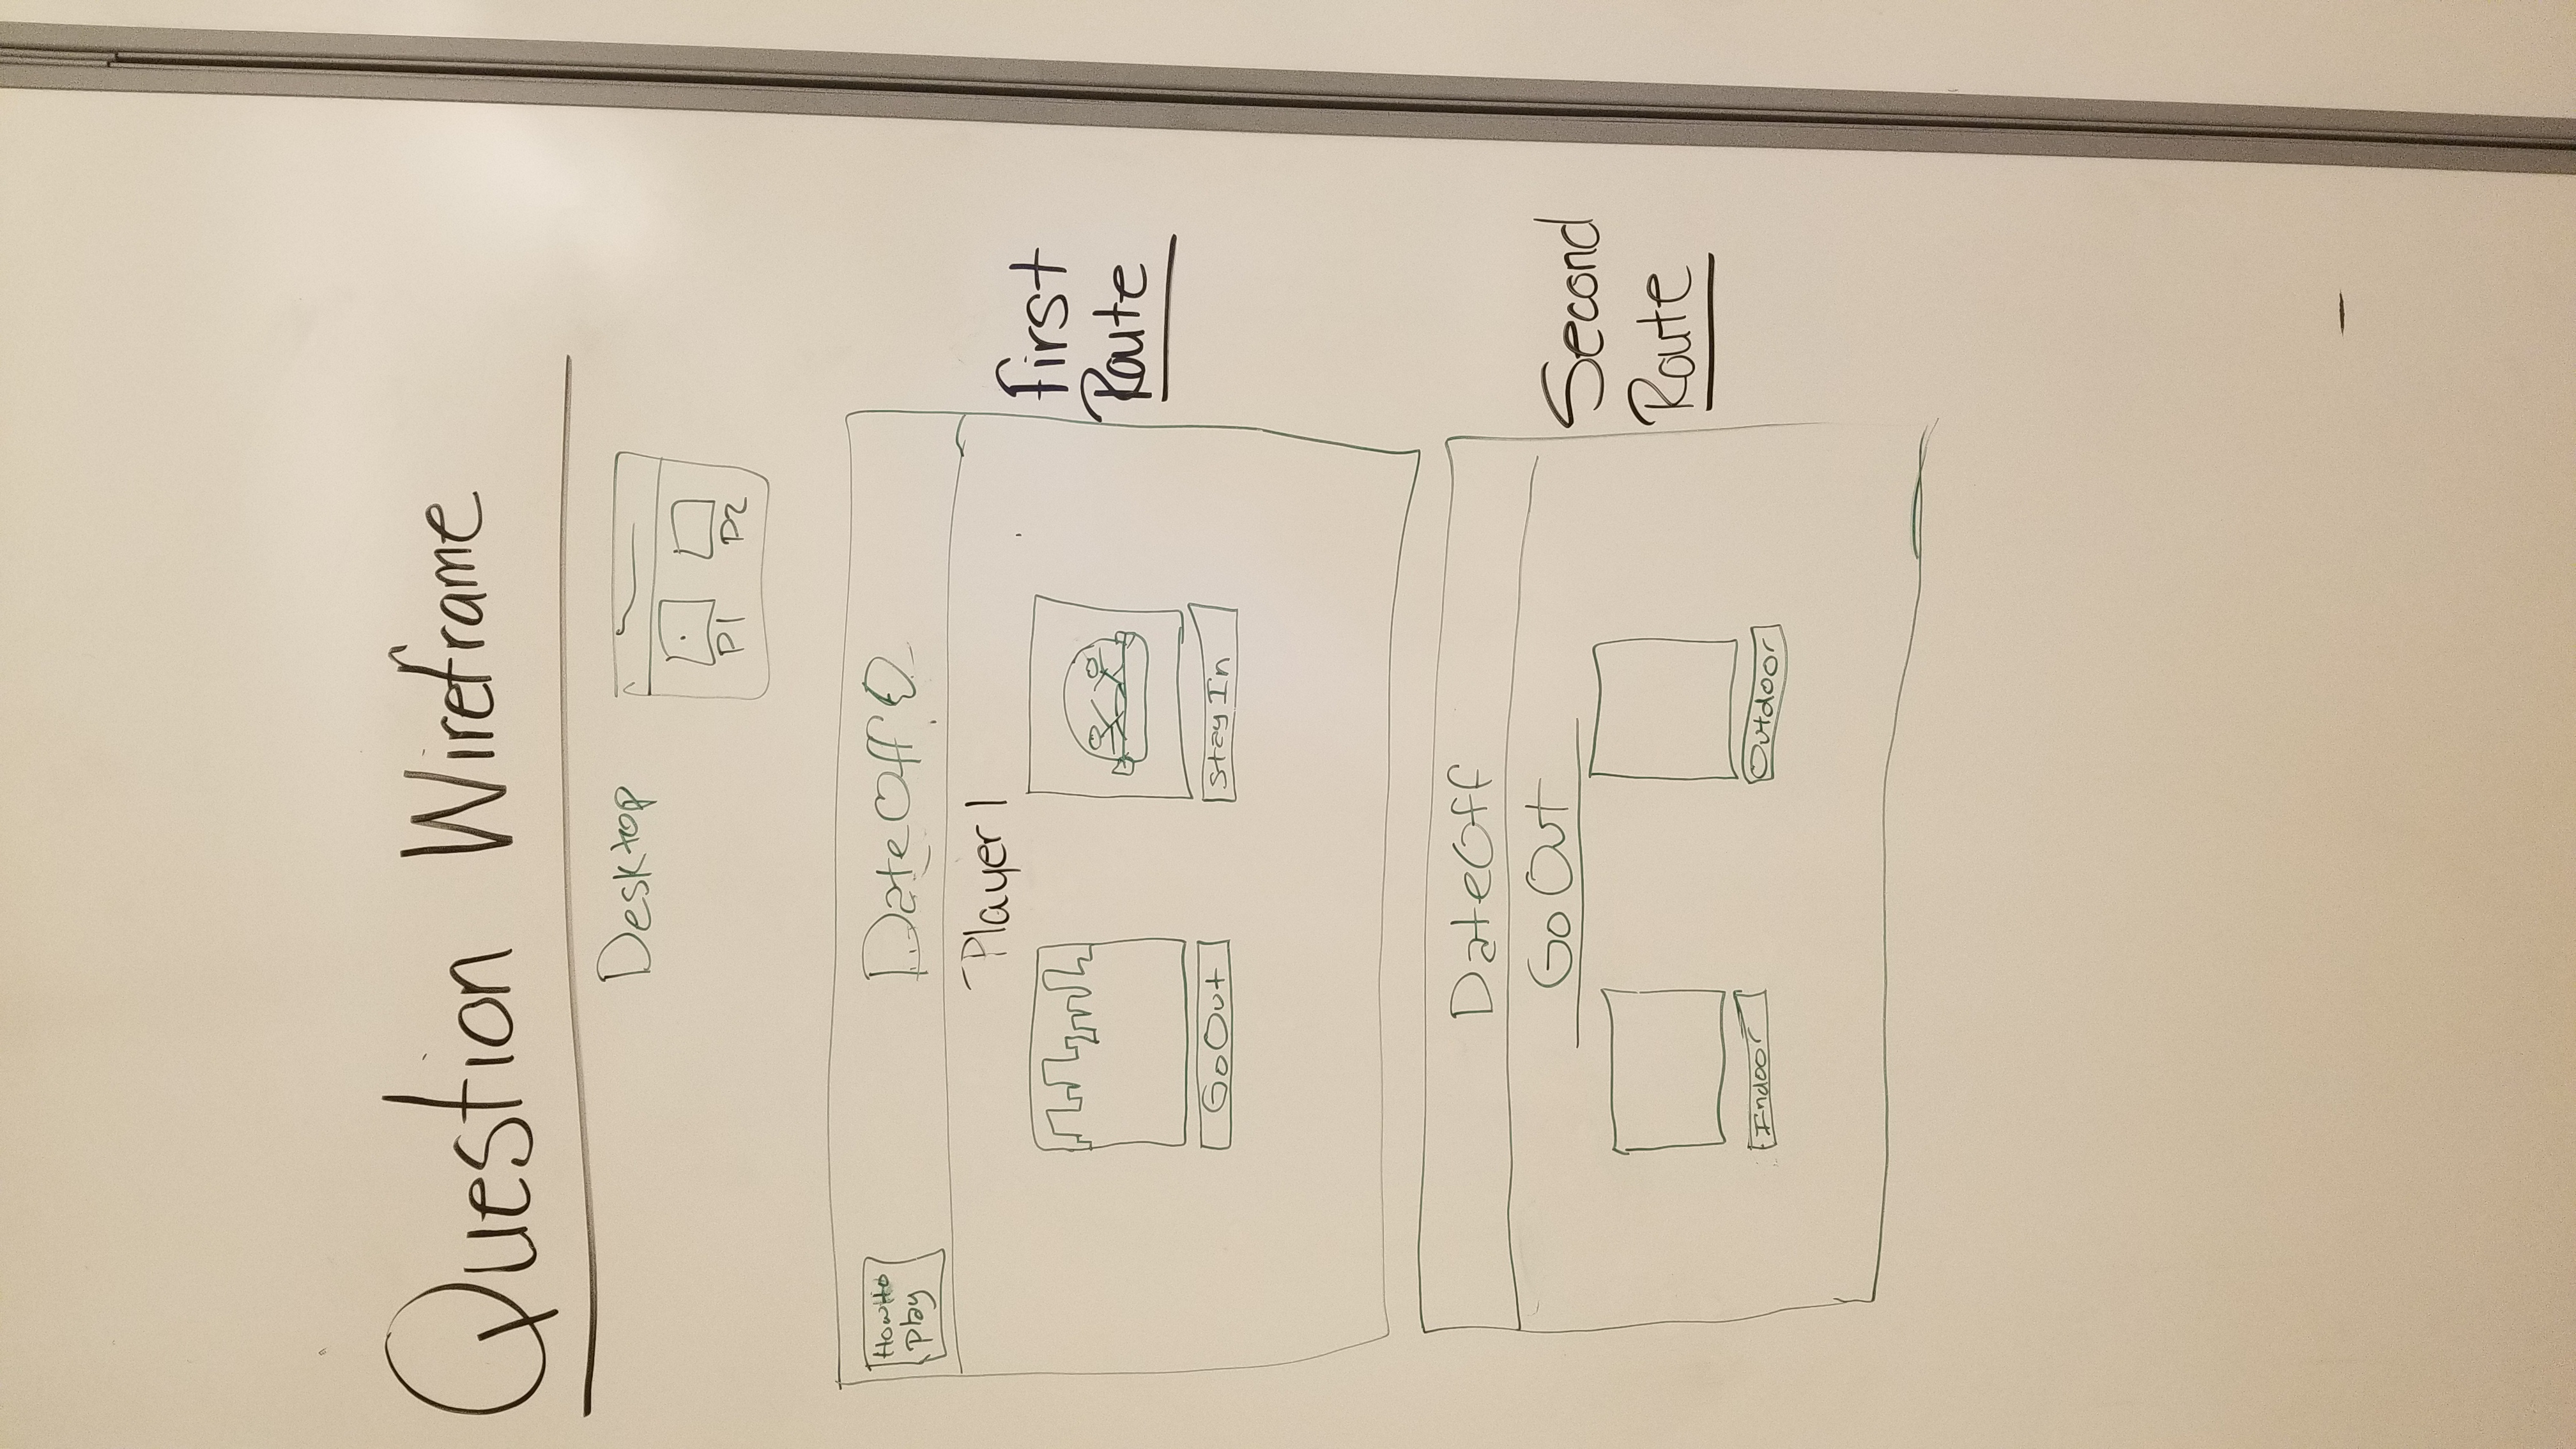 Question Wireframe
Desktop
P1 P2
How to
Play
DateOff
Player 1
Go Out
Stay In
First
Route
DateOff
Go Out
Indoor
Outdoor
Second
Route